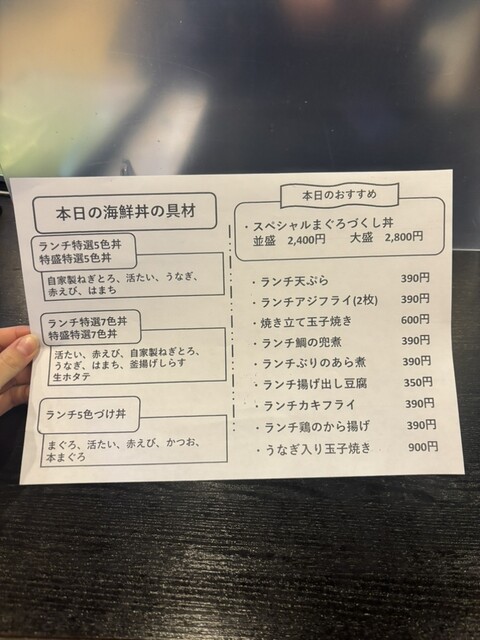 本日の海鮮丼の具材
ランチ特選5色丼
特盛特選5色丼
自家製ねぎとろ、活たい、うなぎ、
赤えび、はまち
ランチ特選7色丼
特盛特選7色丼
活たい、赤えび、自家製ねぎとろ、
うなぎ、はまち、釜揚げしらす
生ホタテ
ランチ5色づけ丼
まぐろ、活たい、赤えび、かつお、
本まぐろ
本日のおすすめ
・スペシャルまぐろづくし丼
並盛 2,400円 大盛 2,800円
・ランチ天ぷら 390円
・ランチアジフライ(2枚) 390円
・焼き立て玉子焼き 600円
・ランチ鯛の兜煮 390円
・ランチぶりのあら煮 390円
・ランチ揚げ出し豆腐 350円
・ランチカキフライ 390円
・ランチ鶏のから揚げ 390円
・うなぎ入り玉子焼き 900円